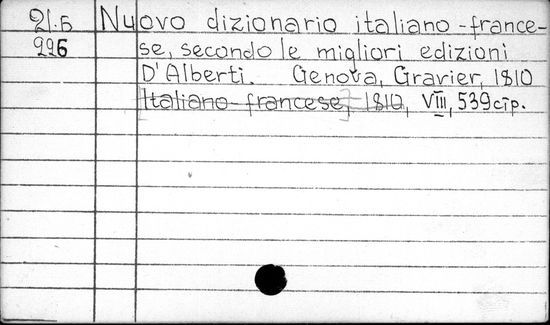 21.б Nuovo dizionario italiano-france-
226 se, secondo le migliori edizioni
D'Alberti. Genova, Gravier, 1810
[Italiano-francese] 1810, VIII, 539 стр.